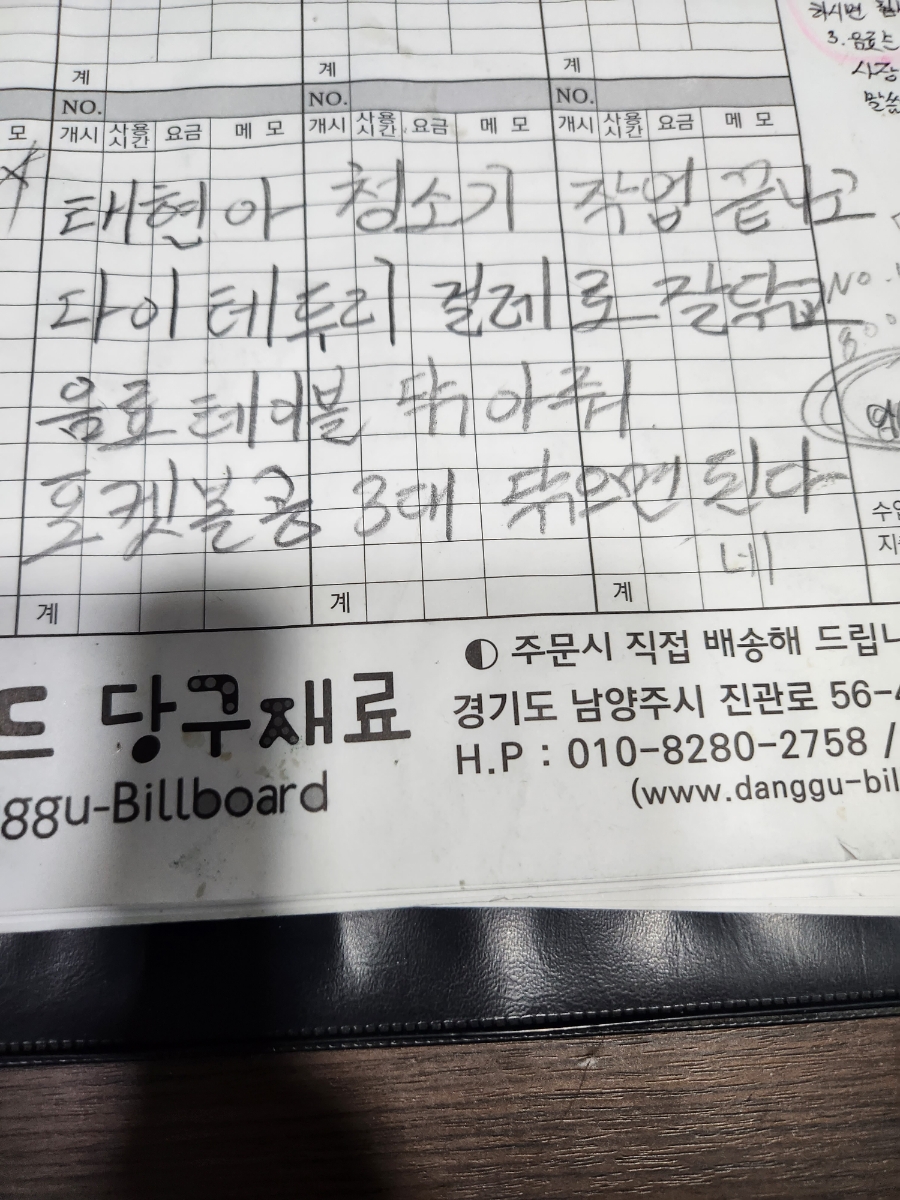 하시면
3. 음료는
사장
말씀
계 계 계
NO. NO. NO.
모 개시 사용시간 요금 메 모 개시 사용시간 요금 메 모 개시 사용시간 요금 메 모
태현아 청소기 작업 끝나고
다이 테두리 걸레로 잘닦고
음료 테이블 닦아줘
포켓볼공 3대 닦으면 된다
네
NO.
수입
지출
계 계 계
드 당구재료
ggu-Billboard
주문시 직접 배송해 드립니
경기도 남양주시 진관로 56-4
H.P : 010-8280-2758 /
(www.danggu-bil